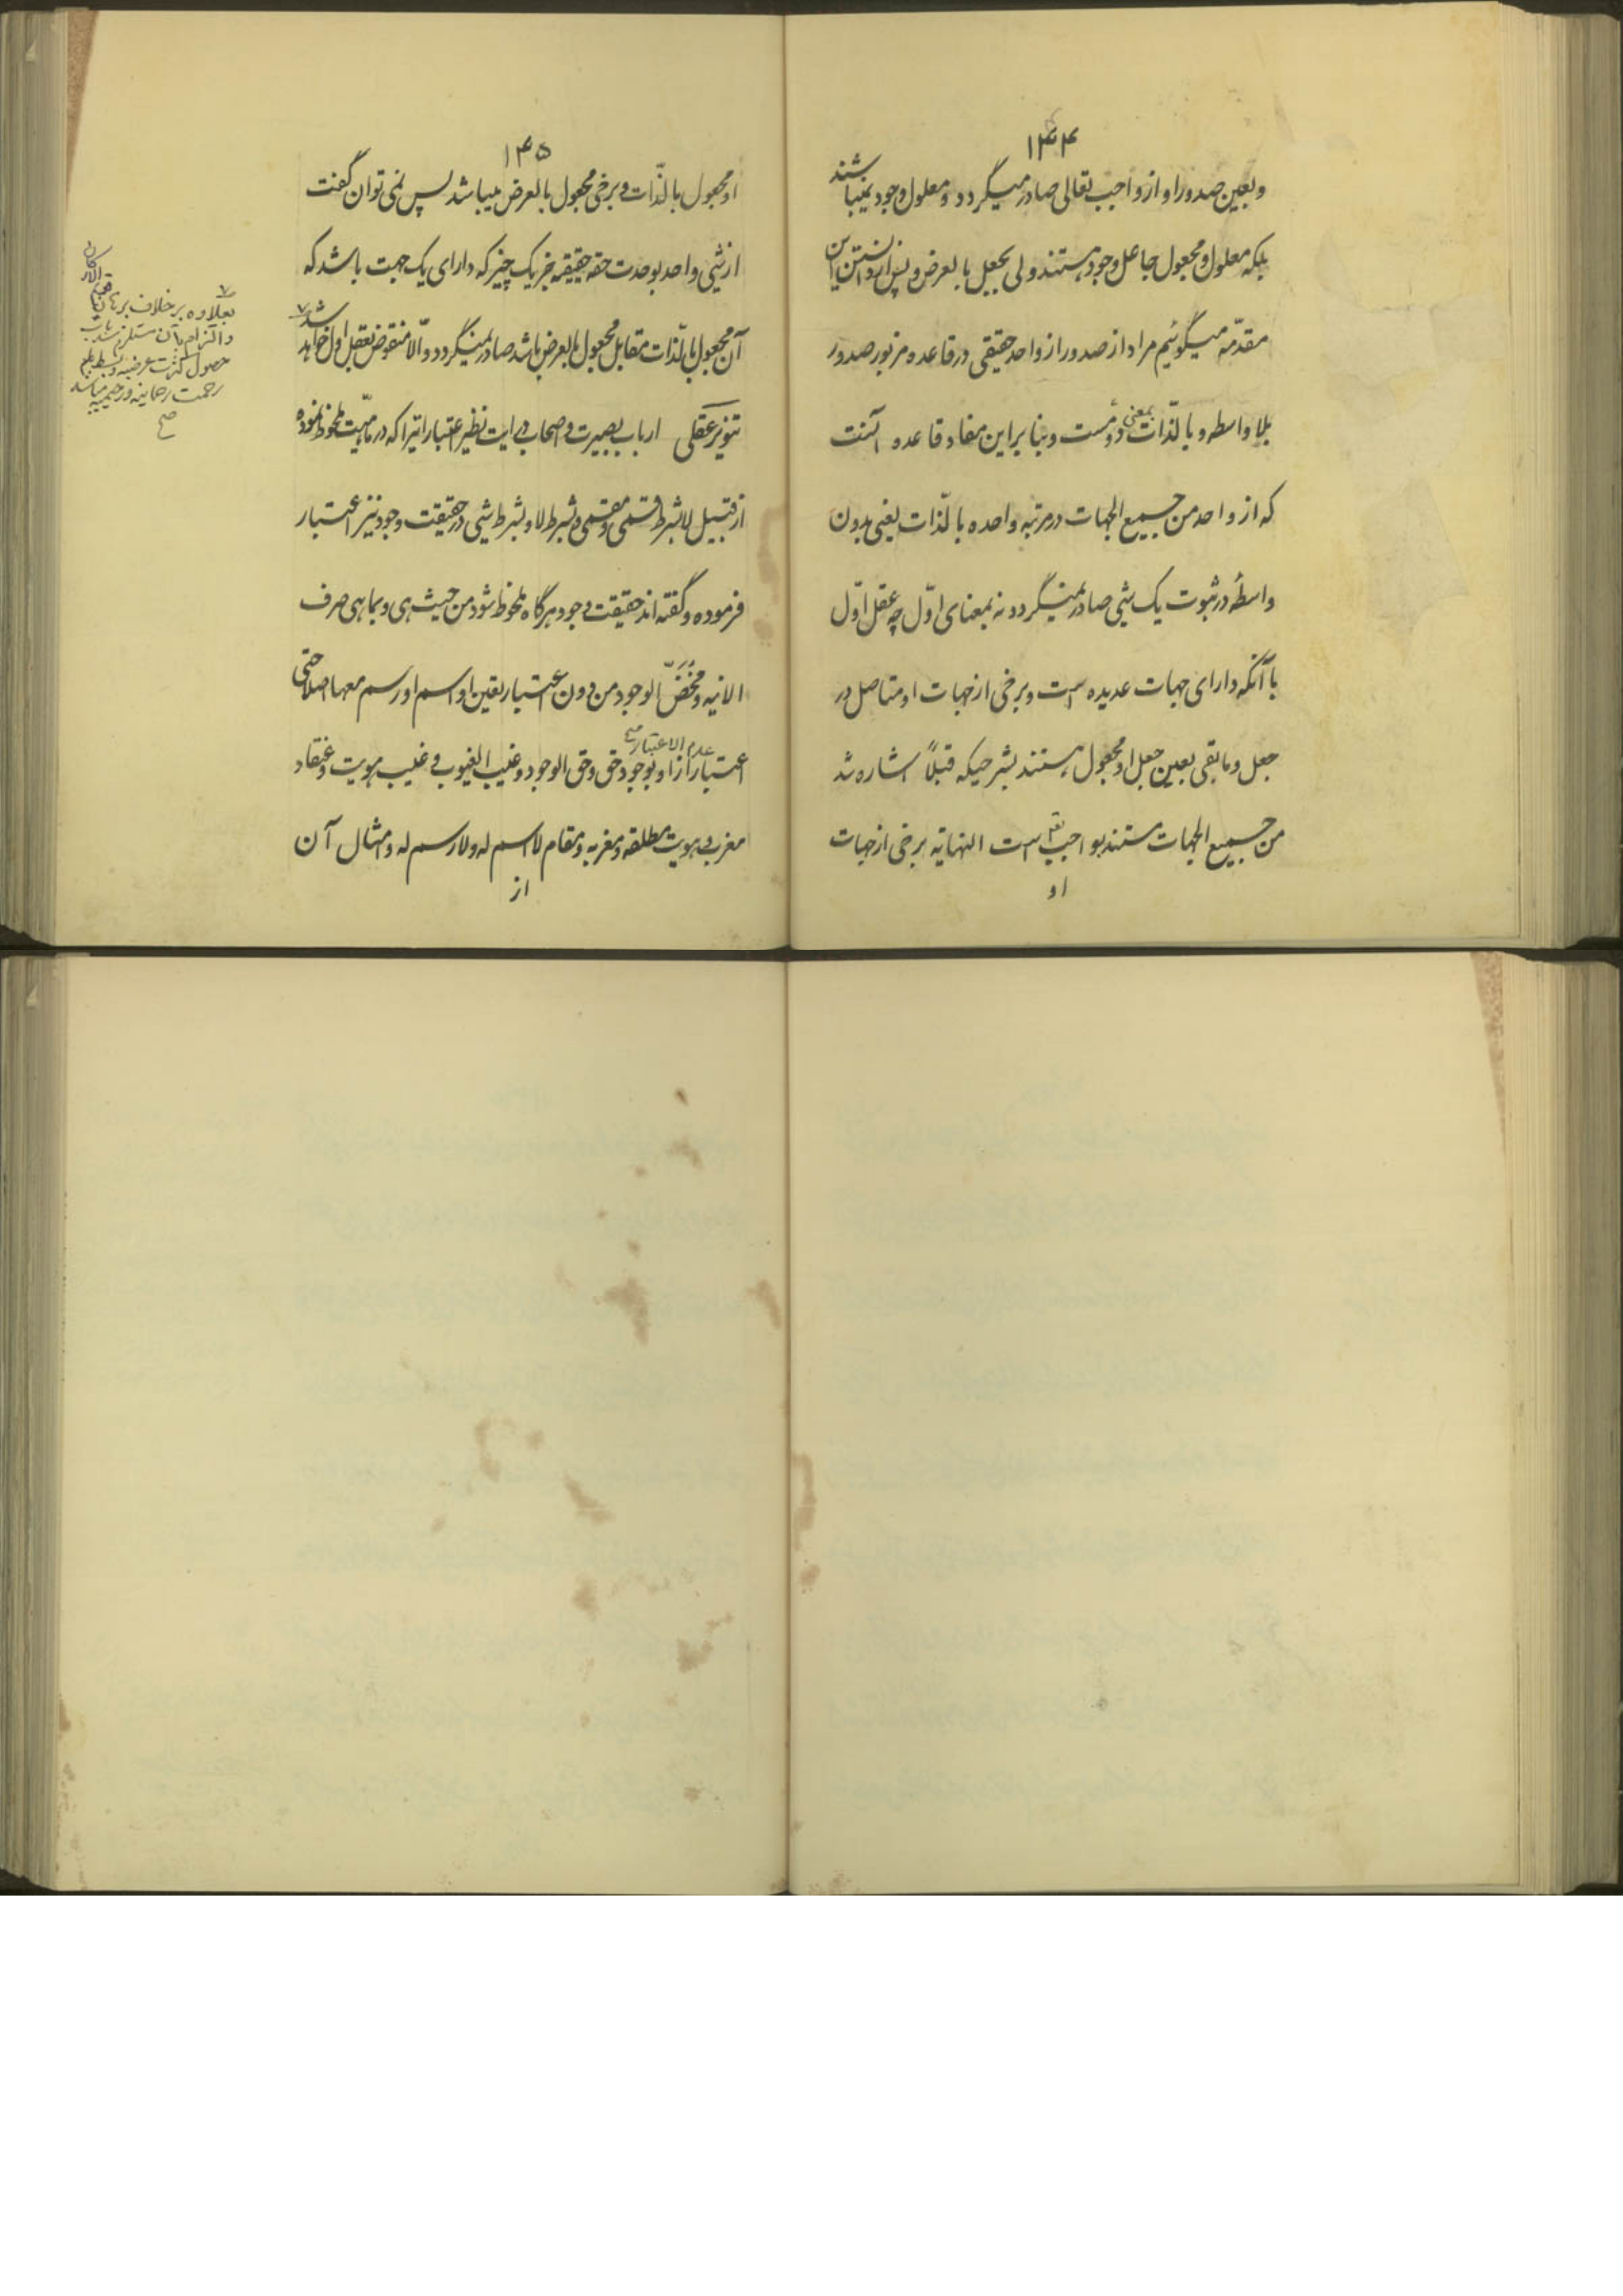 ۱۴۴
و بعین صدور او از واجب تعالی صادر میگردد و معلول وجود نمیباشند
بلکه معلول و مجعول جاعل وجود هستند ولی بجعل بالعرض و پس از دانستن این
مقدّمه میگوئیم مراد از صدور از واحد حقیقی در قاعده مزبور صدور
بلا واسطه و بالذّات بمعنی دوّمست و بنا براین مفاد قاعده آنست
که از واحد من جمیع الجهات در مرتبه واحده بالذّات یعنی بدون
واسطهٔ در ثبوت یک شیئی صادر نمیگردد نه بمعنای اوّل چه عقل اوّل
با آنکه دارای جهات عدیده است و برخی از جهات او متاصل در
جعل و مابقی بعین جعل او مجعول هستند بشرحیکه قبلاً اشاره شد
من جمیع الجهات مستند بواجب تعالی است النهایه برخی از جهات
او
۱۴۵
او مجعول بالذّات و برخی مجعول بالعرض میباشد پس نمی توان گفت
از شیئی واحد بوحدت حقه حقیقیه جز یک چیز که دارای یک جهت باشد که
آن مجعول بالذّات مقابل مجعول بالعرض باشد صادر نمیگردد و الّا منقوض بعقل اول خواهد شد
تنویر عقلی ارباب بصیرت و اصحاب درایت نظیر اعتباراتیرا که در ماهیّت ملحوظ نموده
از قبیل لابشرط قسمی و مقسمی و بشرط لا و بشرط شیئی در حقیقت وجود نیز اعتبار
فرموده و گفته اند حقیقت وجود هرگاه ملحوظ شود من حیث هی و بما هی صرف
الانیه و محض الوجود من دون اعتبار تعین او اسم او رسم معها اصلا حتی
اعتبار عدم الاعتبار صح از او بوجود حق و حق الوجود و غیب الغیوب و غیب هویت و عنقاء
مغرب و هویت مطلقه و مغربه و مقام لا اسم له و لا رسم له و امثال آن
از
بعلاوه بر خلاف برهان
و التزام بآن مستلزم
حصول کثرت عرضیه و
رحمت رحمانیه و رحیمیه میباشد
صح